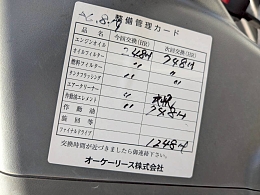 整備管理カード
品名 今回交換(HR) 次回交換(HR)
エンジンオイル 248H 748H
オイルフィルター 〃 〃
燃料フィルター 〃 〃
タンクフラッシング
エアークリーナー
作動油エレメント
作動油 1248H
旋回等
ファイナルドライブ
交換時間が近づきましたら御連絡下さい。
オーケーリース株式会社